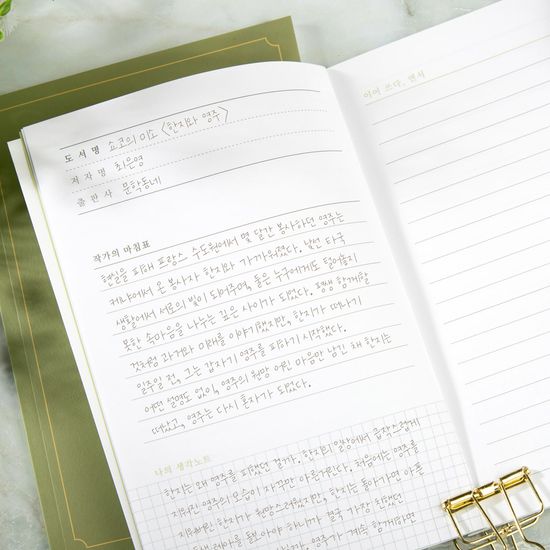 도서명 쇼코의 미소 〈한지와 영주〉
저자명 최은영
출판사 문학동네
작가의 마침표
현실을 피해 프랑스 수도원에서 몇 달간 봉사하던 영주는
케냐에서 온 봉사자 한지와 가까워졌다. 낯선 타국
생활에서 서로의 빛이 되어주며, 둘은 누구에게도 털어놓지
못한 속마음을 나누는 깊은 사이가 되었다. 평생 함께할
것처럼 과거와 미래를 이야기했지만, 한지가 떠나기
일주일 전, 그는 갑자기 영주를 피하기 시작했다.
어떤 설명도 없이, 영주의 원망 어린 마음만 남긴 채 한지는
떠났고, 영주는 다시 혼자가 되었다.
나의 생각노트
한지는 왜 영주를 피했던 걸까. 한지의 일상에서 급작스럽게
지워진 영주의 모습이 자꾸만 아른거린다. 처음에는 영주를
지워버린 한지가 원망스러웠지만, 한지는 돌아가면 아픈
동생 레아를 돌봐야 하니까 결국 가장 친했던
영주가 계속 함께하면
이어 쓰다, 면서